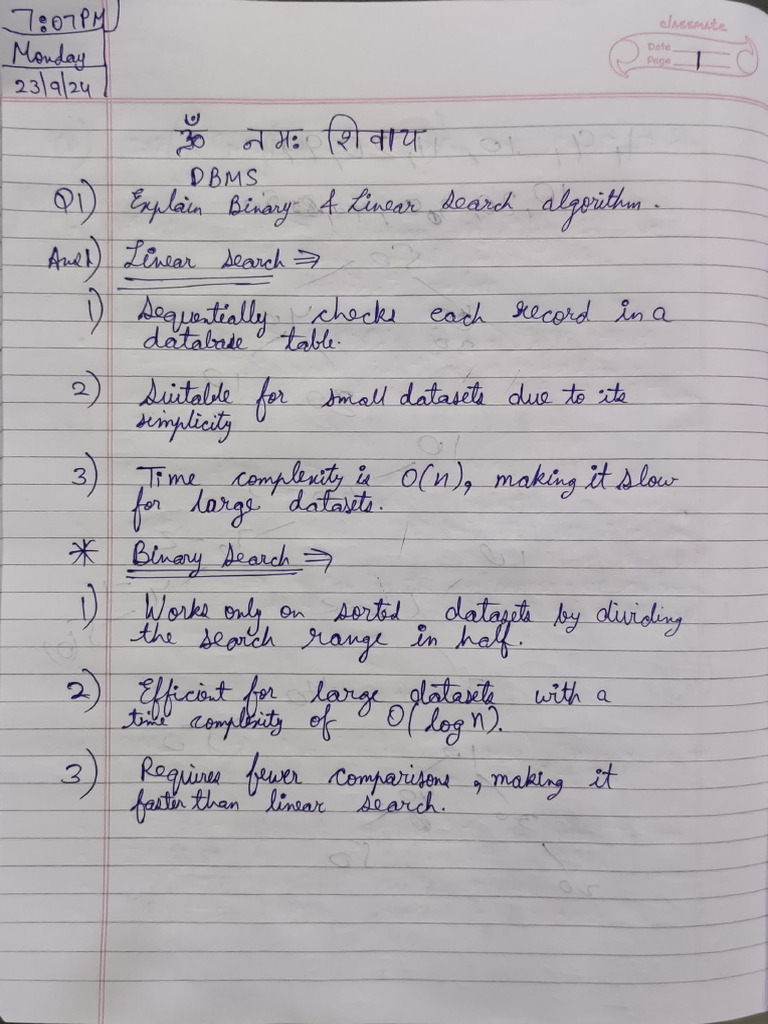 7:07PM
Monday
23/9/24
classmate
Date
Page 1
ॐ नमः शिवाय
DBMS
Q1) Explain Binary & Linear Search algorithm.
Ans1) Linear Search ⇒
1) Sequentially checks each record in a
database table.
2) Suitable for small datasets due to its
simplicity
3) Time complexity is O(n), making it slow
for large datasets.
* Binary Search ⇒
1) Works only on sorted datasets by dividing
the search range in half.
2) Efficient for large datasets with a
time complexity of O(log n).
3) Requires fewer comparisons, making it
faster than linear search.